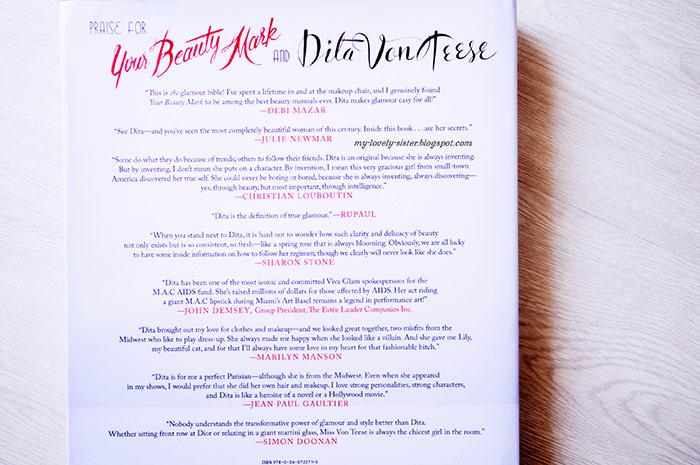 PRAISE FOR
Your Beauty Mark AND Dita Von Teese
“This is the glamour bible! I’ve spent a lifetime in and at the makeup chair, and I genuinely found
Your Beauty Mark to be among the best beauty manuals ever. Dita makes glamour easy for all!”
—DEBI MAZAR
“See Dita—and you’ve seen the most completely beautiful woman of this century. Inside this book . . . are her secrets.”
—JULIE NEWMAR
my-lovely-sister.blogspot.com
“Some do what they do because of trends; others to follow their friends. Dita is an original because she is always inventing.
But by inventing, I don’t mean she puts on a character. By invention, I mean this very gracious girl from small-town
America discovered her true self. She could never be boring or bored, because she is always inventing, always discovering—
yes, through beauty, but most important, through intelligence.”
—CHRISTIAN LOUBOUTIN
“Dita is the definition of true glamour.”—RUPAUL
“When you stand next to Dita, it is hard not to wonder how such clarity and delicacy of beauty
not only exists but is so consistent, so fresh—like a spring rose that is always blooming. Obviously, we are all lucky
to have some inside information on how to follow her regimen; though we clearly will never look like she does.”
—SHARON STONE
“Dita has been one of the most iconic and committed Viva Glam spokespersons for the
M.A.C AIDS fund. She’s raised millions of dollars for those affected by AIDS. Her act riding
a giant M.A.C lipstick during Miami’s Art Basel remains a legend in performance art!”
—JOHN DEMSEY, Group President, The Estée Lauder Companies Inc.
“Dita brought out my love for clothes and makeup—and we looked great together, two misfits from the
Midwest who like to play dress-up. She always made me happy when she looked like a villain. And she gave me Lily,
my beautiful cat, and for that I’ll always have some love in my heart for that fashionable bitch.”
—MARILYN MANSON
“Dita is for me a perfect Parisian—although she is from the Midwest. Even when she appeared
in my shows, I would prefer that she did her own hair and makeup. I love strong personalities, strong characters,
and Dita is like a heroine of a novel or a Hollywood movie.”
—JEAN PAUL GAULTIER
“Nobody understands the transformative power of glamour and style better than Dita.
Whether sitting front row at Dior or relaxing in a giant martini glass, Miss Von Teese is always the chicest girl in the room.”
—SIMON DOONAN
ISBN 978-0-06-072271-5